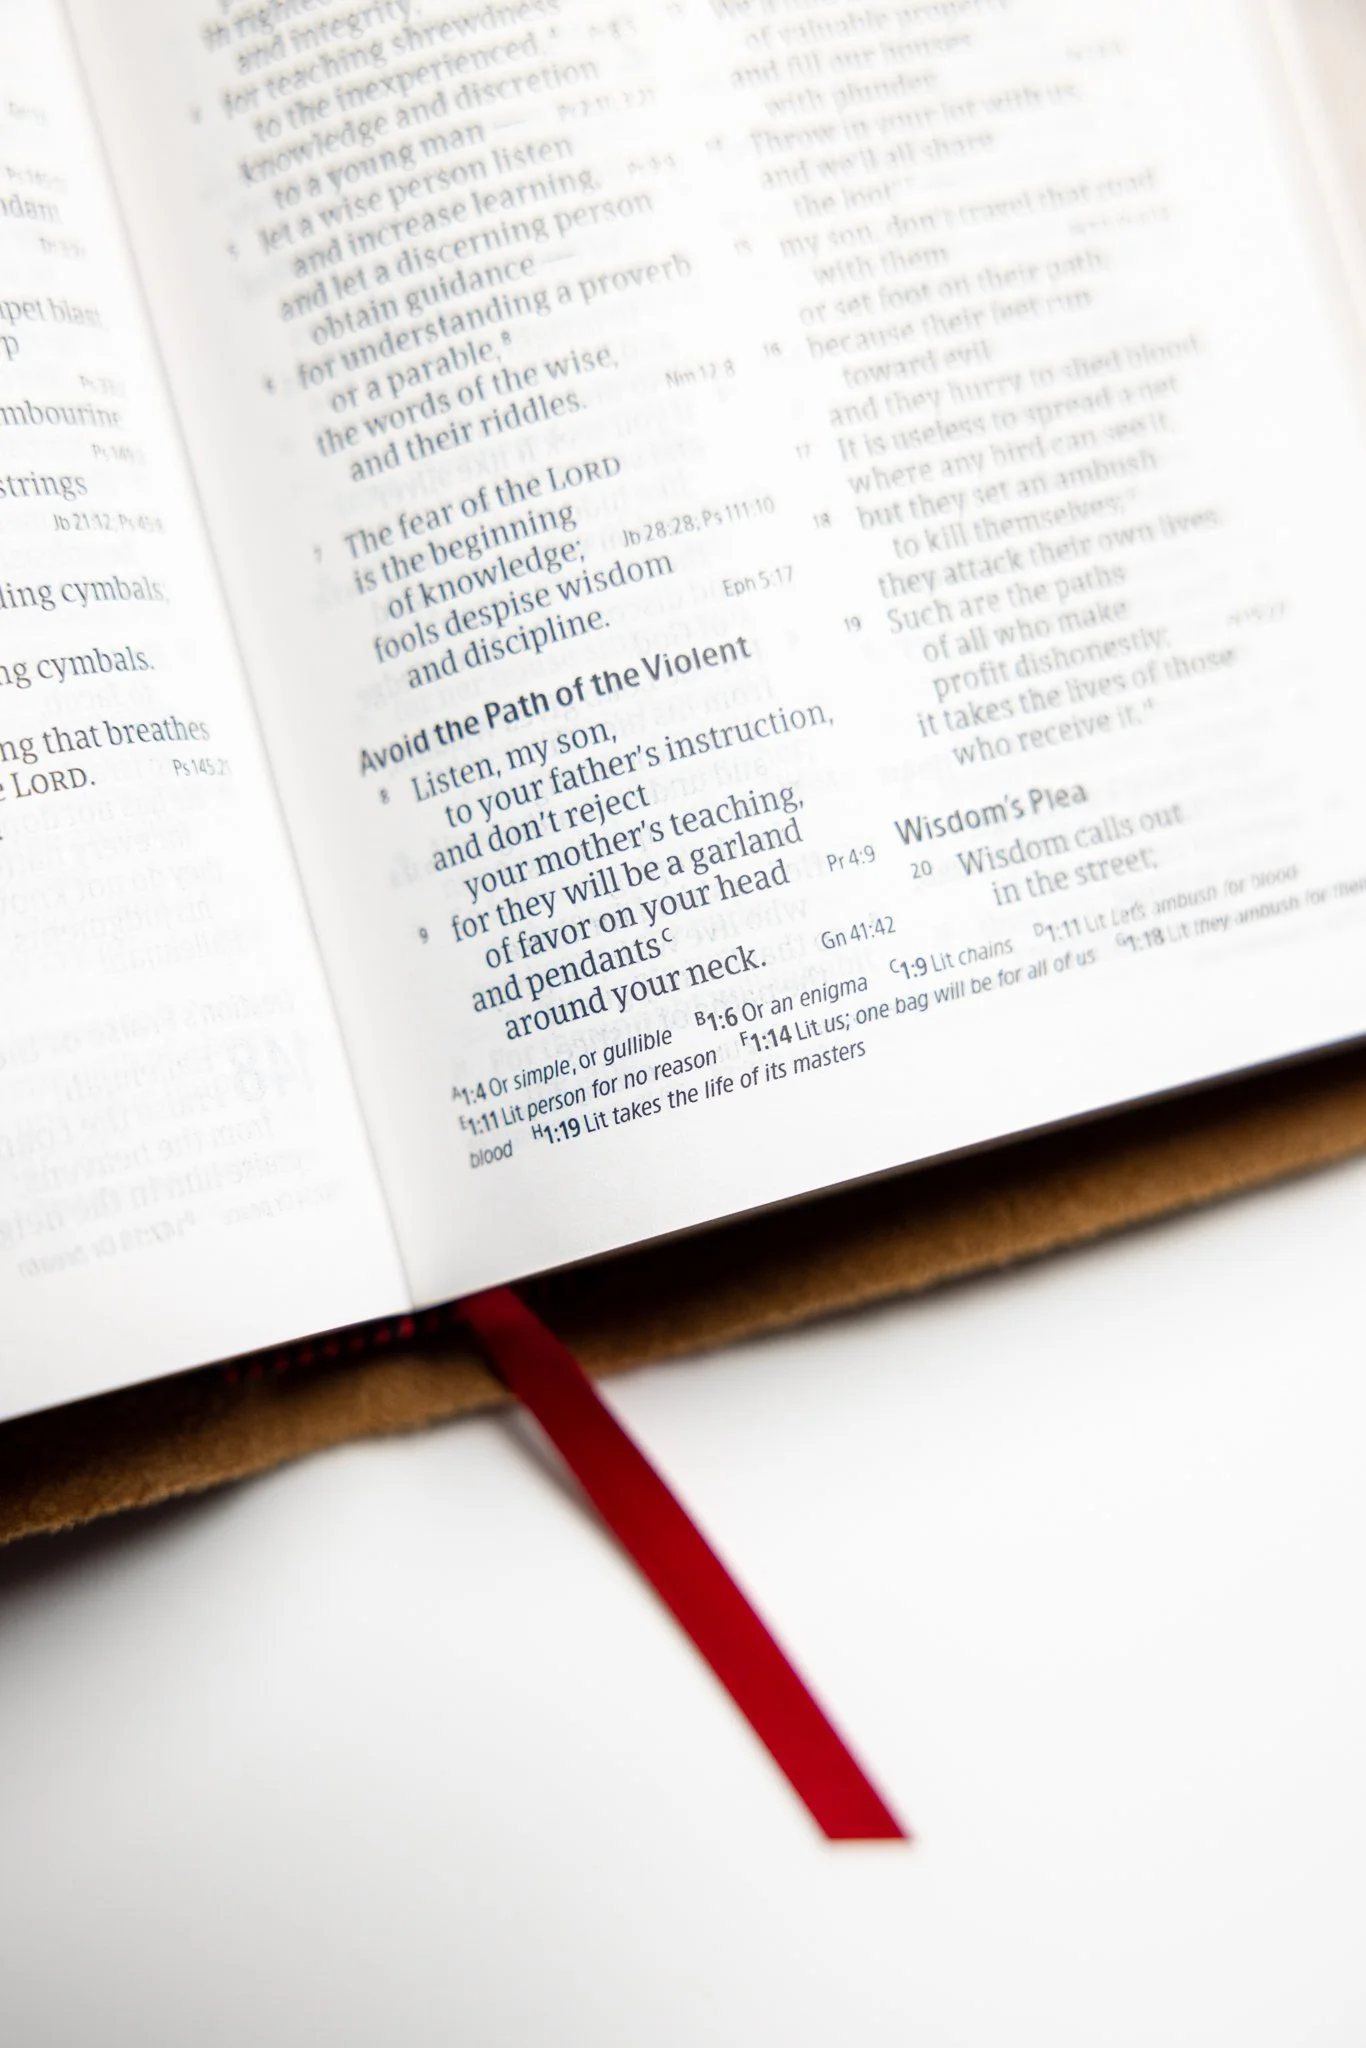 Ps 33:2
mbourine
strings
Jb 21:12; Ps 45:8
ding cymbals;
ng cymbals.
ng that breathes
e LORD.
Ps 145:21
and integrity;
for teaching shrewdness
to the inexperienced,
knowledge and discretion
Pr 2:11; 3:21
to a young man —
5 let a wise person listen
and increase learning,
Pr 9:9
and let a discerning person
obtain guidance —
6 for understanding a proverb
or a parable,B
the words of the wise,
and their riddles.
Nm 12:8
7 The fear of the LORD
is the beginning
of knowledge;
Jb 28:28; Ps 111:10
fools despise wisdom
and discipline.
Eph 5:17
Avoid the Path of the Violent
8 Listen, my son,
to your father's instruction,
and don't reject
your mother's teaching,
9 for they will be a garland
of favor on your head
Pr 4:9
and pendantsC
around your neck.
Gn 41:42
of valuable property
and fill our houses
with plunder.
14 Throw in your lot with us,
and we'll all share
the loot"
15 my son, don't travel that road
with them
or set foot on their path,
16 because their feet run
toward evil
and they hurry to shed blood.
17 It is useless to spread a net
where any bird can see it,
18 but they set an ambush
to kill themselves;G
they attack their own lives.
19 Such are the paths
of all who make
profit dishonestly;
it takes the lives of those
who receive it.H
Wisdom's Plea
20 Wisdom calls out
in the street;
A1:4 Or simple, or gullible B1:6 Or an enigma C1:9 Lit chains D1:11 Lit Let's ambush for blood
E1:11 Lit person for no reason F1:14 Lit us; one bag will be for all of us G1:18 Lit they ambush for their
blood H1:19 Lit takes the life of its masters